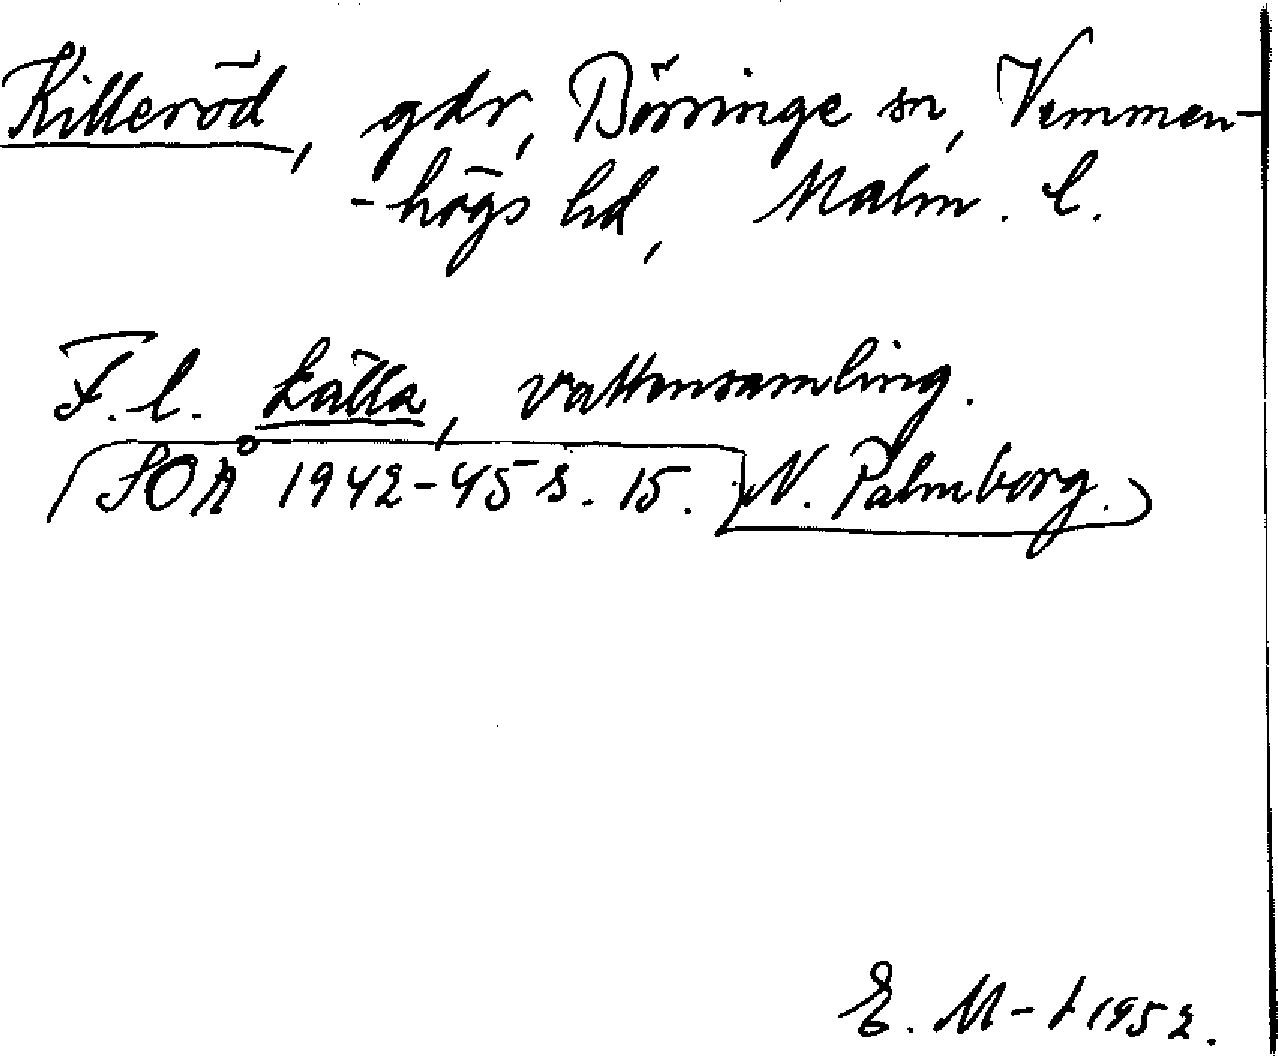 Killeröd, gdr, Börringe sn, Vemmen-
-högs hd, Malm. l.
F. l. källa, vattensamling.
(SOÅ 1942-45 s. 15. N. Palmborg.)
E. M-t 1952.